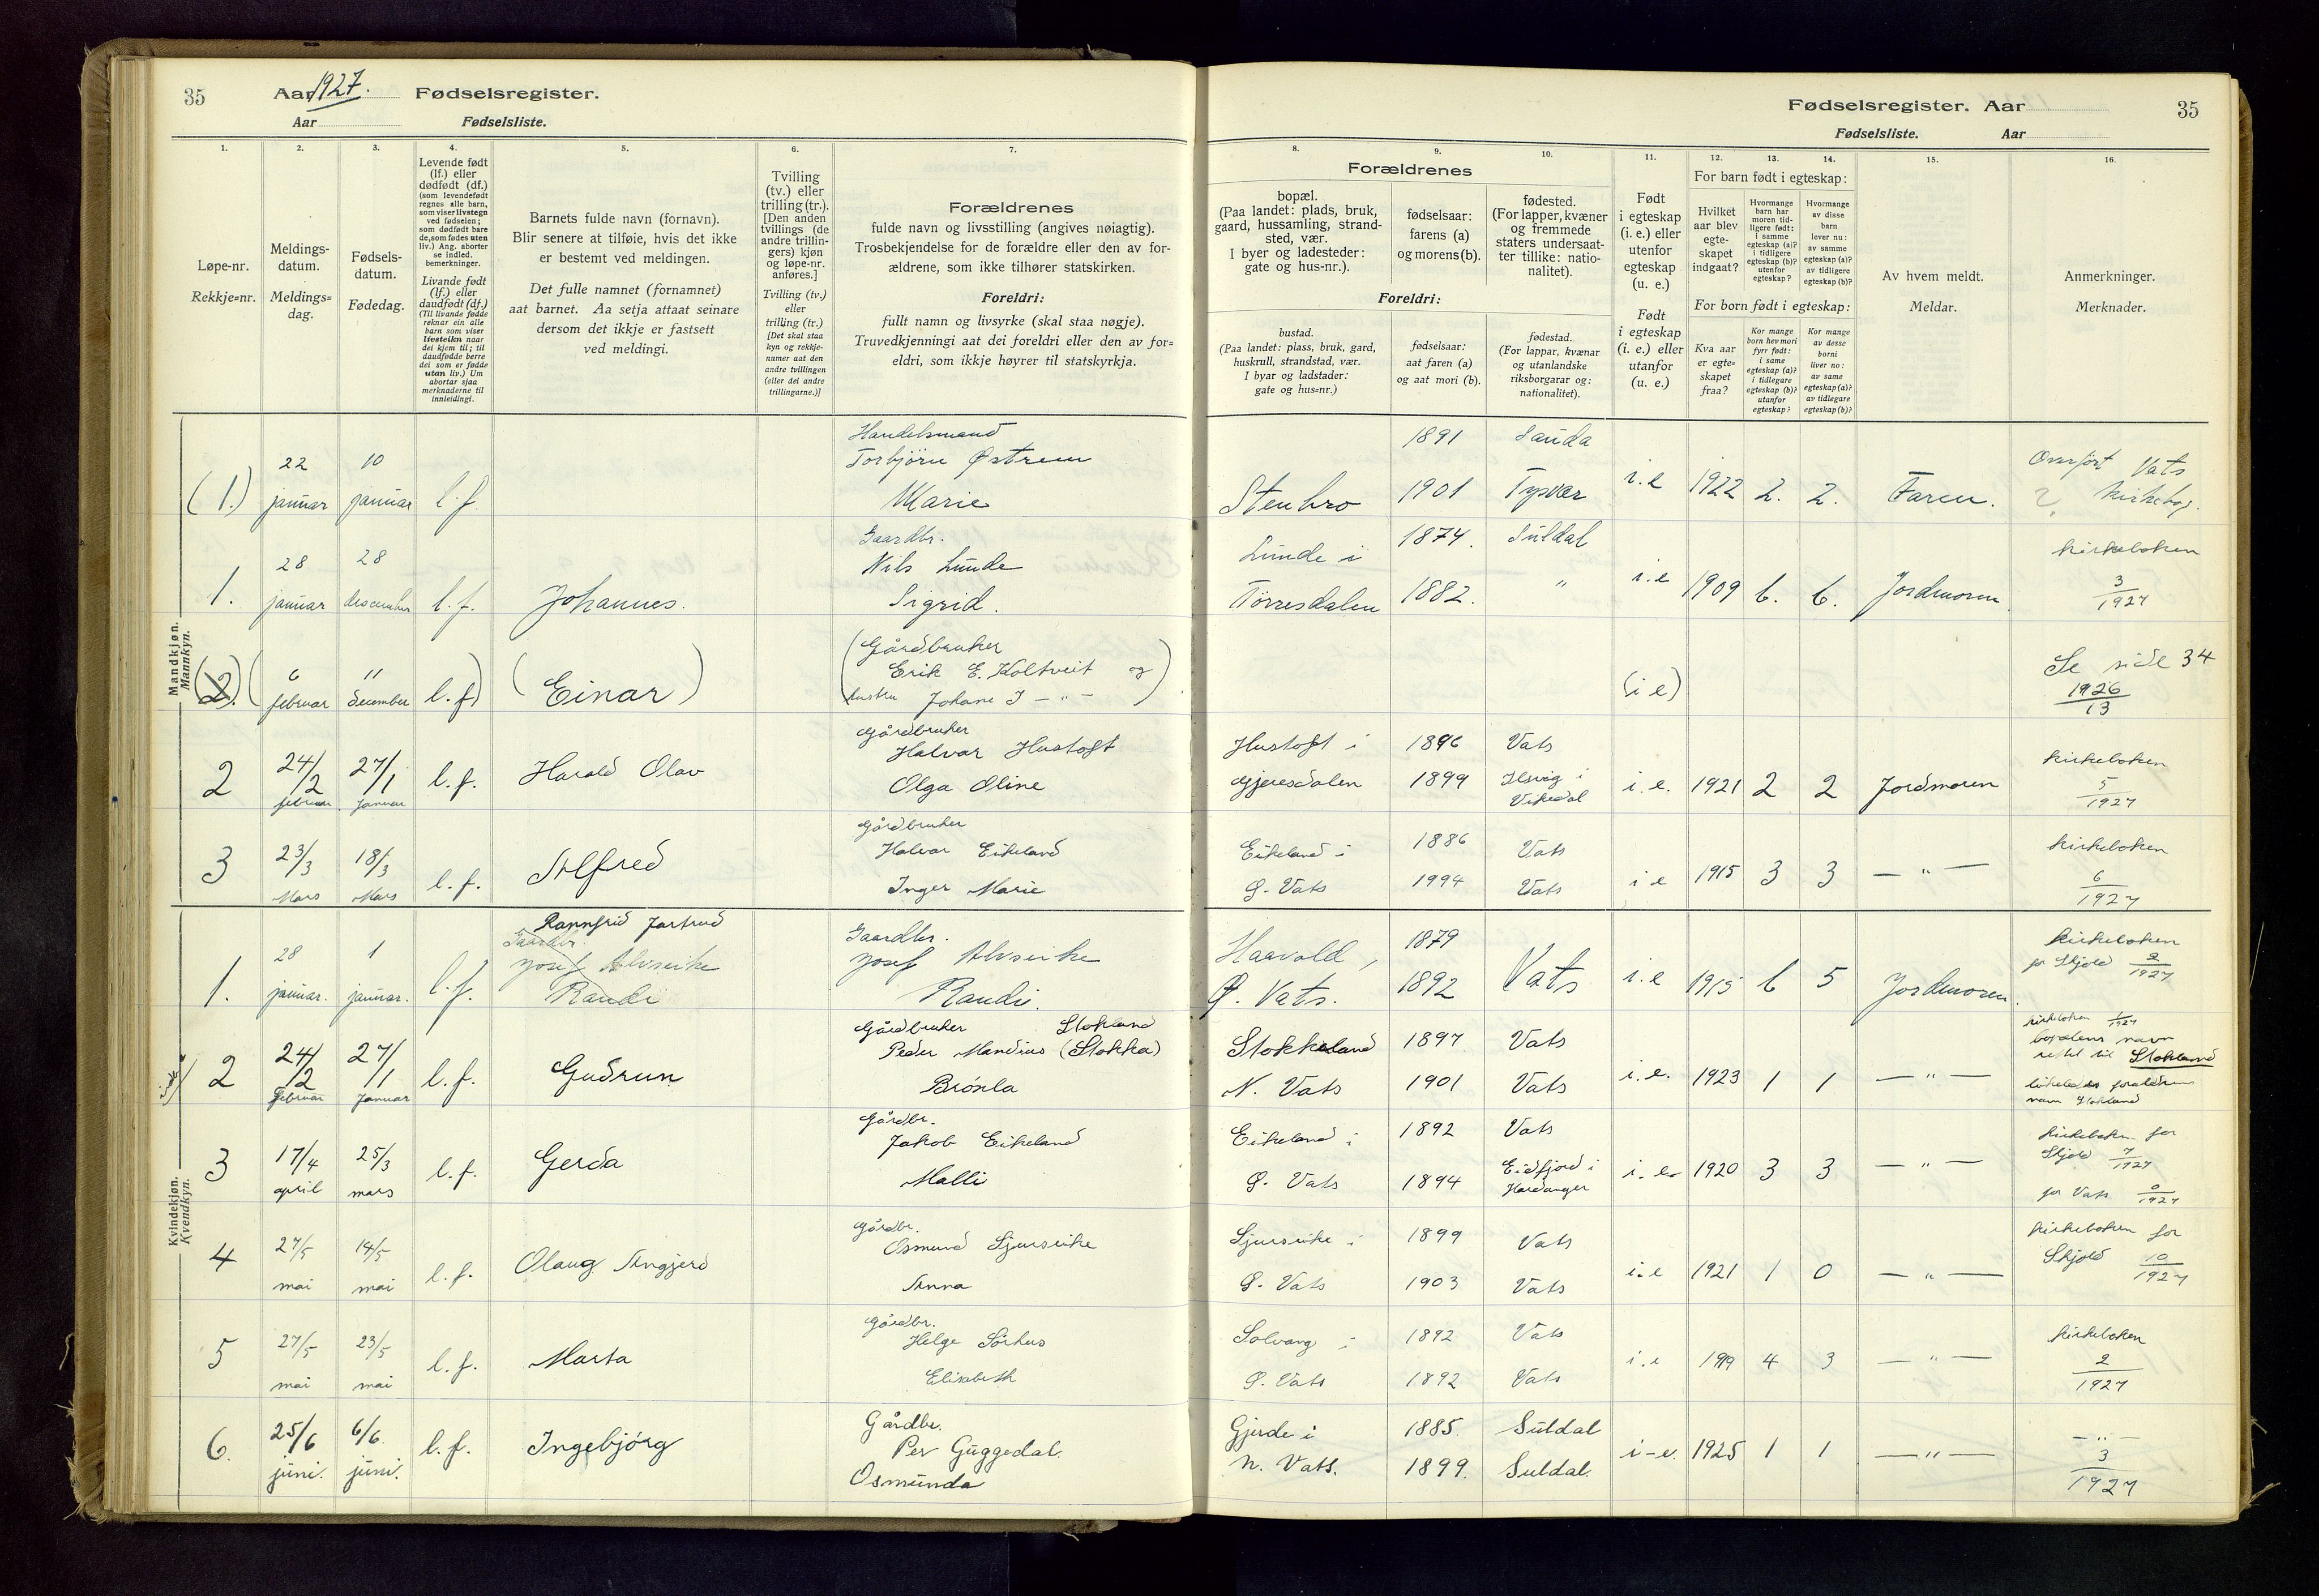 35 Aar 1927. Fødselsregister.
Aar Fødselsliste.
1. 2. 3. 4. 5. 6. 7.
Løpe-nr.
Rekkje=nr.
Meldings-
datum.
Meldings=
dag.
Fødsels-
datum.
Fødedag.
Levende født
(lf.) eller
dødfødt (df.)
(som levendefødt
regnes alle barn,
som viser livstegn
ved fødselen;
som dødfødt bare
de, som fødes uten
liv.) Ang. aborter
se indled.
bemerkninger.
Livande født
(lf.) eller
daudfødt (df.)
(Til livande fødde
reknar ein alle
barn som viser
livsteikn naar
dei kjem til; til
daudfødde berre
dei som er fødde
utan liv.) Um
abortar sjaa
merknaderne til
innleidingi.
Barnets fulde navn (fornavn).
Blir senere at tilføie, hvis det ikke
er bestemt ved meldingen.
Det fulle namnet (fornamnet)
aat barnet. Aa setja attaat seinare
dersom det ikkje er fastsett
ved meldingi.
Tvilling
(tv.) eller
trilling (tr.).
[Den anden
tvillings (de
andre trillin-
gers) kjøn
og løpe-nr.
anføres.]
Tvilling (tv.)
eller
trilling (tr.)
[Det skal staa
kyn og rekkje-
numer aat den
andre tvillingen
(eller dei andre
trillingarne.)]
Forældrenes
fulde navn og livsstilling (angives nøiagtig).
Trosbekjendelse for de forældre eller den av for-
ældrene, som ikke tilhører statskirken.
Foreldri:
fullt namn og livsyrke (skal staa nøgje).
Truvedkjenningi aat dei foreldri eller den av for=
eldri, som ikkje høyrer til statskyrkja.
Fødselsregister. Aar 35
Fødselsliste. Aar
8. 9. 10. 11. 12. 13. 14. 15. 16.
Forældrenes
bopæl.
(Paa landet: plads, bruk,
gaard, hussamling, strand-
sted, vær.
I byer og ladesteder:
gate og hus-nr.).
fødselsaar:
farens (a)
og morens (b).
fødested.
(For lapper, kvæner
og fremmede
staters undersaat-
ter tillike: natio-
nalitet).
Foreldri:
bustad.
(Paa landet: plass, bruk, gard,
huskrull, strandstad, vær.
I byar og ladstader:
gate og hus=nr.)
fødselsaar:
aat faren (a)
og aat mori (b).
fødestad.
(For lappar, kvænar
og utanlandske
riksborgarar og:
nationalitet).
Født
i egteskap
(i. e.) eller
utenfor
egteskap
(u. e.)
Født
i egteskap
(i. e.) eller
utanfor
(u. e.)
For barn født i egteskap:
Hvilket
aar blev
egte-
skapet
indgaat?
Hvormange
barn har
moren tid-
ligere født:
i samme
egteskap (a)?
i tidligere
egteskap (b)?
utenfor
egteskap?
Hvormange
av disse
barn
lever nu:
av samme
egteskap (a)?
av tidligere
egteskap (b)?
For born født i egteskap:
Kva aar
er egte-
skapet
fraa?
Kor mange
born hev mori
fyrr født:
i same
egteskap (a)?
i tidlegare
egteskap (b)?
utanfor
egteskap?
Kor mange
av desse
borni
liver no:
av same
egteskap (a)?
av tidlegare
egteskap (b)?
Av hvem meldt.
Meldar.
Anmerkninger.
Merknader.
Mandkjøn.
Mannkyn.
Handelsmand 1891 Sauda
22 10 Torbjörn Østrem Overført Vats
(1.) januar januar l.f Marie Stenbro 1901 Tysvær i.e 1922 2. 2. Faren. ? kirkebog.
Gaardbr. 1874. Suldal kirkeboken
28 28 Nils Lunde Lunde i
1. januar desember l.f. Johannes. Sigrid. Törresdalen 1882. " i.e 1909 6. 6. Jordmoren 3/1927
(Gårdbruker
(2). (6 11 Erik E. Holtveit og Se side 34
februar desember l.f) (Einar) hustru Johane I — " —) (i e) 1926/13
Gårdbruker
24/2 27/1 Halvar Hustoft Hustoft i 1896 Vats kirkeboken
2 februar Januar l.f. Harald Olav Olga Oline Gjeresdalen 1899 Ilsvig i Vikedal i.e. 1921 2 2 Jordmoren 5/1927
Gårdbruker
23/3 18/3 Halvar Eikeland Eikeland i 1886 Vats kirkeboken
3 Mars Mars l.f. Alfred Inger Marie Ø. Vats 1994 Vats i e 1915 3 3 — " — 6/1927
Kvindekjøn.
Kvendkyn.
Rannfrid Jartrud
28 1 Gaardbr. Gaardbr. 1879 kirkeboken
Josef Alvseike Josef Alvseike Haavold, for Skjold 2/1927
1. januar. januar. l.f. Randi Randi. Ø. Vats. 1892 Vats i.e 1915 6 5 Jordmoren.
Gårdbruker Stokland kirkeboken 1/1927
24/2 27/1 Peder Mandius (Stokka) Stokkeland 1897 Vats bopælens navn
2 februar Januar l.f. Gudrun Brönla N. Vats 1901 Vats i.e. 1923 1 1 — " — rettet til Stokland
likeledes forældrenes
navn Stokland
Gårdbr. kirkeboken for
17/4 25/3 Jakob Eikeland Eikeland i 1892 Vats Skjold 7/1927
3 april mars l.f. Gerda Malli Ø. Vats 1894 Eidfjord i Hardanger i.e. 1920 3 3 — " — for Vats 0/1927
Gårdbr. kirkeboken for
27/5 14/5 Osmund Sjurseike Sjurseike i 1899 Vats Skjold 10/1927
4 mai mai l.f. Olaug Angjerd Anna Ø. Vats 1903 Vats i.e 1921 1 0 — " —
Gårdbr.
27/5 23/5 Helge Sörhus Solvang i 1892 Vats kirkeboken
5 mai mai l.f. Marta Elisabeth Ø. Vats 1892 Vats i.e 1919 4 3 — " — 2/1927
Gårdbr.
25/6 6/6 Per Guggedal. Gjerde i 1885. Suldal — " —
6. juni. juni. l.f. Ingebjörg Osmunda N. Vats. 1899. Suldal. i-e. 1925 1 1 — " — 3/1927